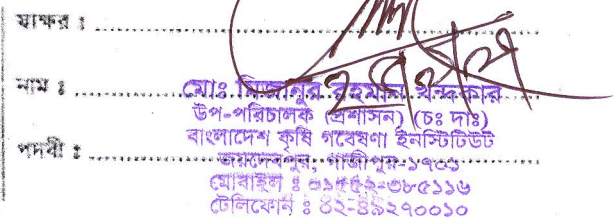 স্বাক্ষর :
নাম : মোঃ মিজানুর রহমান খন্দকার
উপ-পরিচালক (প্রশাসন) (চঃ দাঃ)
বাংলাদেশ কৃষি গবেষণা ইনস্টিটিউট
পদবী : জয়দেবপুর, গাজীপুর-১৭০১
মোবাইল ঃ ০১৫৫২-৩৮৫১১৬
টেলিফোন ঃ ৪২-৪৯২৭০০১০